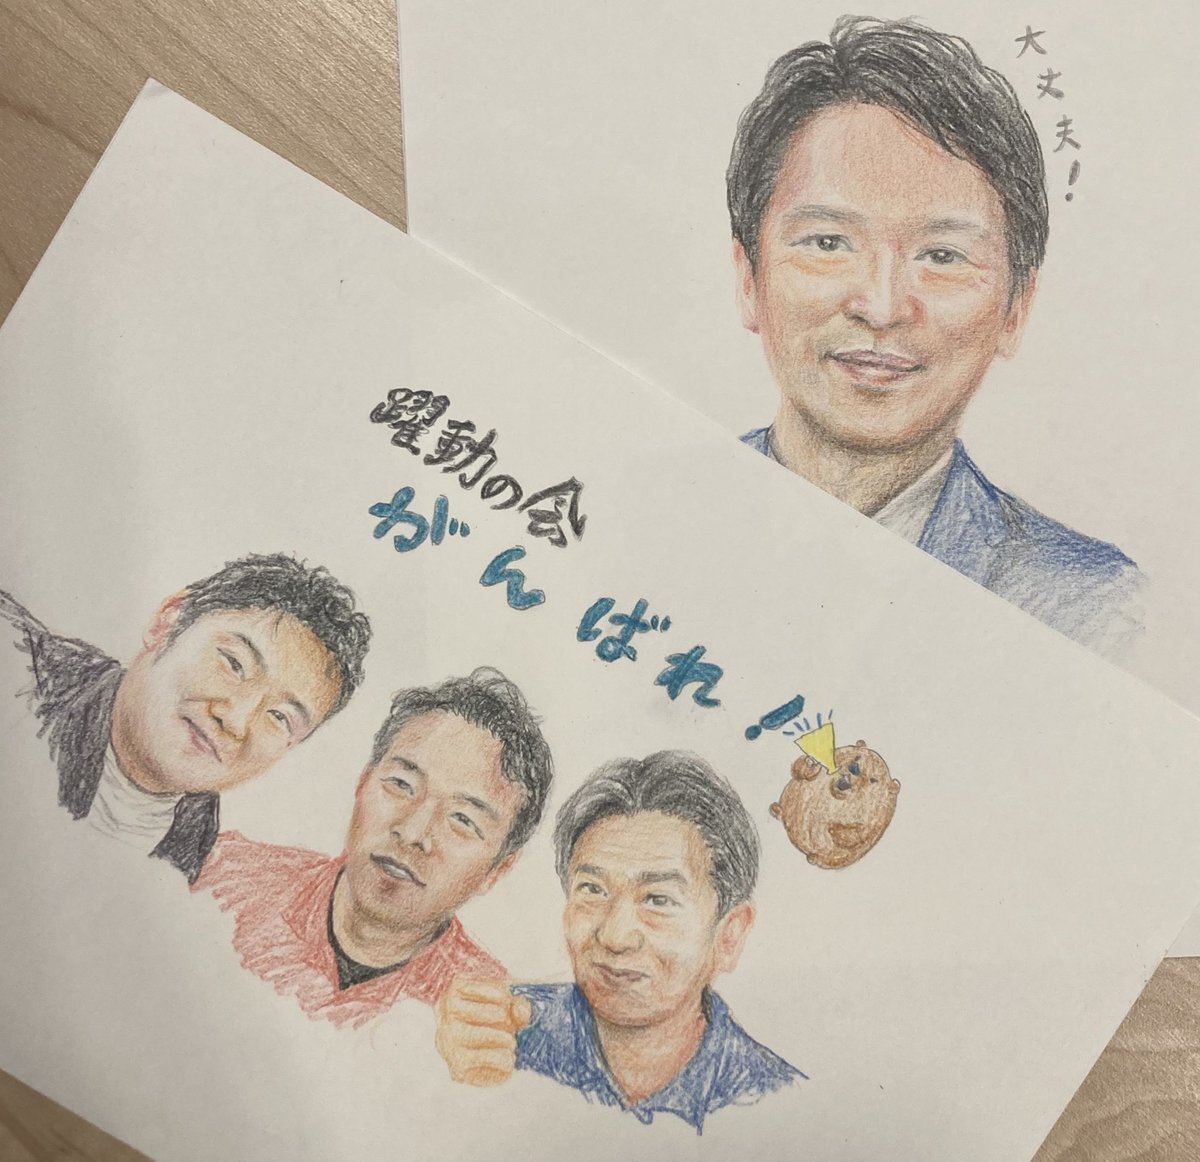 大丈夫！
躍動の会
がんばれ！